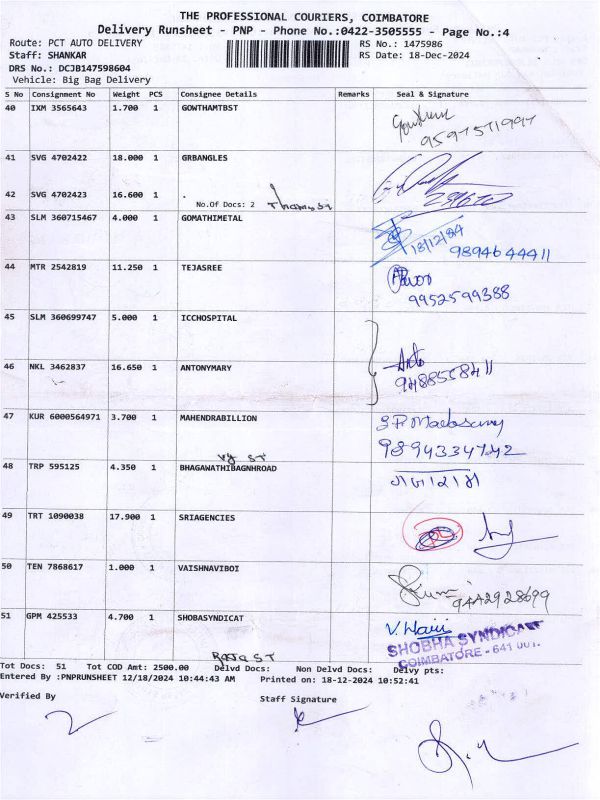 THE PROFESSIONAL COURIERS, COIMBATORE
Delivery Runsheet - PNP - Phone No.:0422-3505555 - Page No.:4
Route: PCT AUTO DELIVERY RS No.: 1475986
Staff: SHANKAR RS Date: 18-Dec-2024
DRS No.: DCJB147598604
Vehicle: Big Bag Delivery
S No Consignment No Weight PCS Consignee Details Remarks Seal & Signature
40 IXM 3565643 1.700 1 GOWTHAMTBST
41 SVG 4702422 18.000 1 GRBANGLES
42 SVG 4702423 16.600 1
No.Of Docs: 2
43 SLM 360715467 4.000 1 GOMATHIMETAL
18/12/24
9894644411
44 MTR 2542819 11.250 1 TEJASREE
9952599388
45 SLM 360699747 5.000 1 ICCHOSPITAL
46 NKL 3462837 16.650 1 ANTONYMARY
47 KUR 6000564971 3.700 1 MAHENDRABILLION
9894334742
48 TRP 595125 4.350 1 BHAGAWATHIBAGNHROAD
49 TRT 1090038 17.900 1 SRIAGENCIES
50 TEN 7868617 1.000 1 VAISHNAVIBOI
9442928699
51 GPM 425533 4.700 1 SHOBASYNDICAT
V. Hari
SHOBHA SYNDICATE
COIMBATORE - 641 001.
Raja ST
Tot Docs: 51 Tot COD Amt: 2500.00 Delvd Docs: Non Delvd Docs: Delvy pts:
Entered By :PNPRUNSHEET 12/18/2024 10:44:43 AM Printed on: 18-12-2024 10:52:41
Verified By Staff Signature